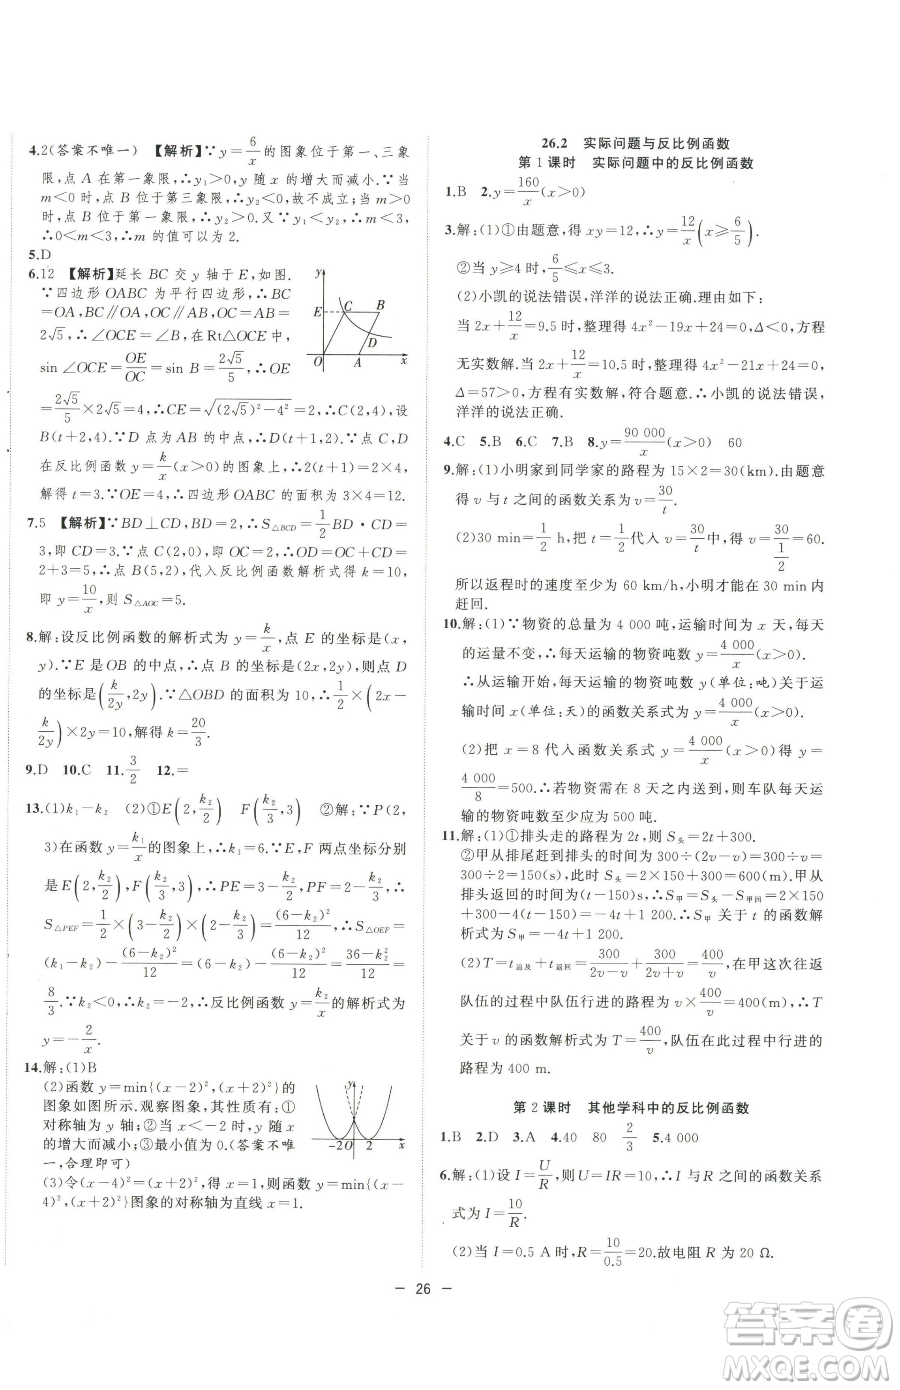 4.2(答案不唯一) 【解析】∵y=6/x的图象位于第一、三象
限,点A在第一象限,∴y₁>0,y随x的增大而减小.当
m<0时,点B位于第三象限,y₂<0,故不成立;当m>
0时,点B位于第一象限,y₂>0.又∵y₁<y₂,∴m<3,
∴0<m<3,∴m的值可以为2.
5.D
6.12 【解析】延长BC交y轴于E,如图.
∵四边形OABC为平行四边形,∴BC
=OA,BC∥OA,OC∥AB,OC=AB=
2√5,∴∠OCE=∠B,在Rt△OCE中,
sin∠OCE=OE/OC=sin B=2√5/5,∴OE
=2√5/5×2√5=4,∴CE=√((2√5)²-4²)=2,∴C(2,4),设
B(t+2,4).∵D点为AB的中点,∴D(t+1,2).∵C,D
在反比例函数y=k/x(x>0)的图象上,∴2(t+1)=2×4,
解得t=3.∵OE=4,∴四边形OABC的面积为3×4=12.
7.5 【解析】∵BD⊥CD,BD=2,∴S△BCD=1/2BD·CD=
3,即CD=3.∵点C(2,0),即OC=2,∴OD=OC+CD=
2+3=5,∴点B(5,2),代入反比例函数解析式得k=10,
即y=10/x,则S△AOC=5.
8.解:设反比例函数的解析式为y=k/x,点E的坐标是(x,
y).∵E是OB的中点,∴点B的坐标是(2x,2y),则点D
的坐标是(k/2y,2y).∵△OBD的面积为10,∴1/2×(2x-
k/2y)×2y=10,解得k=20/3.
9.D 10.C 11.3/2 12.=
13.(1)k₁-k₂ (2)①E(2,k₂/2) F(k₂/3,3) ②解:∵P(2,
3)在函数y=k₁/x的图象上,∴k₁=6.∵E,F两点坐标分别
是E(2,k₂/2),F(k₂/3,3),∴PE=3-k₂/2,PF=2-k₂/3,∴
S△PEF=1/2×(3-k₂/2)×(2-k₂/3)=(6-k₂)²/12,∴S△OEF=
(k₁-k₂)-(6-k₂)²/12=(6-k₂)-(6-k₂)²/12=36-k₂²/12=
8/3.∵k₂<0,∴k₂=-2,∴反比例函数y=k₂/x的解析式为
y=-2/x.
14.解:(1)B
(2)函数y=min{(x-2)²,(x+2)²}的
图象如图所示.观察图象,性质有:①
对称轴为y轴;②当x<-2时,y随x
的增大而减小;③最小值为0.(答案不唯
一,合理即可)
(3)令(x-4)²=(x+2)²,得x=1,则函数y=min{(x-
4)²,(x+2)²}图象的对称轴为直线x=1.
y
E
C
B
D
O
A
x
y
-2
O
2
x
26.2 实际问题与反比例函数
第1课时 实际问题中的反比例函数
1.B 2.y=160/x(x>0)
3.解:(1)①由题意,得xy=12,∴y=12/x(x≥6/5).
②当y≥4时,6/5≤x≤3.
(2)小凯的说法错误,洋洋的说法正确.理由如下:
当2x+12/x=9.5时,整理得4x²-19x+24=0,Δ<0,方程
无实数解.当2x+12/x=10.5时,整理得4x²-21x+24=0,
Δ=57>0,方程有实数解,符合题意.∴小凯的说法错误,
洋洋的说法正确.
4.C 5.B 6.C 7.B 8.y=90 000/x(x>0) 60
9.解:(1)小明家到同学家的路程为15×2=30(km).由题意
得v与t之间的函数关系为v=30/t.
(2)30 min=1/2 h,把t=1/2代入v=30/t中,得v=30/(1/2)=60.
所以返程时的速度至少为60 km/h,小明才能在30 min内
赶回.
10.解:(1)∵物资的总量为4 000吨,运输时间为x天,每天
的运量不变,∴每天运输的物资吨数y=4 000/x.
∴从运输开始,每天运输的物资吨数y(单位:吨)与运
输时间x(单位:天)的函数关系式为y=4 000/x.
(2)把x=8代入函数关系式y=4 000/x,得y=4 000/x=
4 000/8=500.∴若物资需在8天之内送到,则车队每天运
输的物资吨数至少应为500吨.
11.解:(1)①排头走的路程为2t,则S头=2t+300.
②甲从排尾赶到排头的时间为300÷(2v-v)=300÷v=
300÷2=150(s),此时S头=2t+300=600(m).甲从
排头返回的时间为(t-150)s,∴S甲=S头-S甲回=2×150
+300-4(t-150)=-4t+1 200,∴S甲关于t的函数解
析式为S甲=-4t+1 200.
(2)T=t追及+t返回=300/(2v-v)+300/(2v+v)=400/v,在甲这次往返
队伍的过程中队伍行进的路程为v×400/v=400(m),∴T
关于v的函数解析式为T=400/v,在此过程中行进的
路程为400 m.
第2课时 其他学科中的反比例函数
1.B 2.D 3.A 4.40 80 2/3 5.4 000
6.解:(1)设I=U/R,则U=IR=10,∴I与R之间的函数关系
式为I=10/R.
(2)当I=0.5 A时,R=10/0.5=20.故电阻R为20 Ω.
— 26 —
答案圈
MXQE.COM